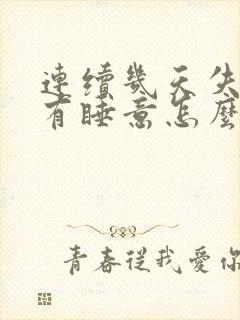 連續幾天失
有睡意怎麼
青春從我愛你